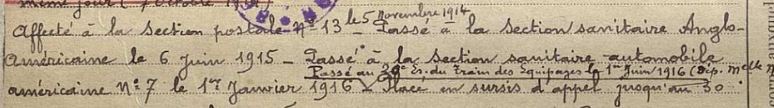 même jour (7 octobre 1914)
Affecté à la section postale Nº 13 le 5 novembre 1914 _ Passé à la section sanitaire Anglo-
Américaine le 6 Juin 1915 _ Passé à la section sanitaire automobile
Passé au 20e Es. du Train des Equipages le 1er Juin 1916 (Dép. melle
américaine Nº 7 le 1er Janvier 1916 _ Placé en sursis d'appel jusqu'au 30